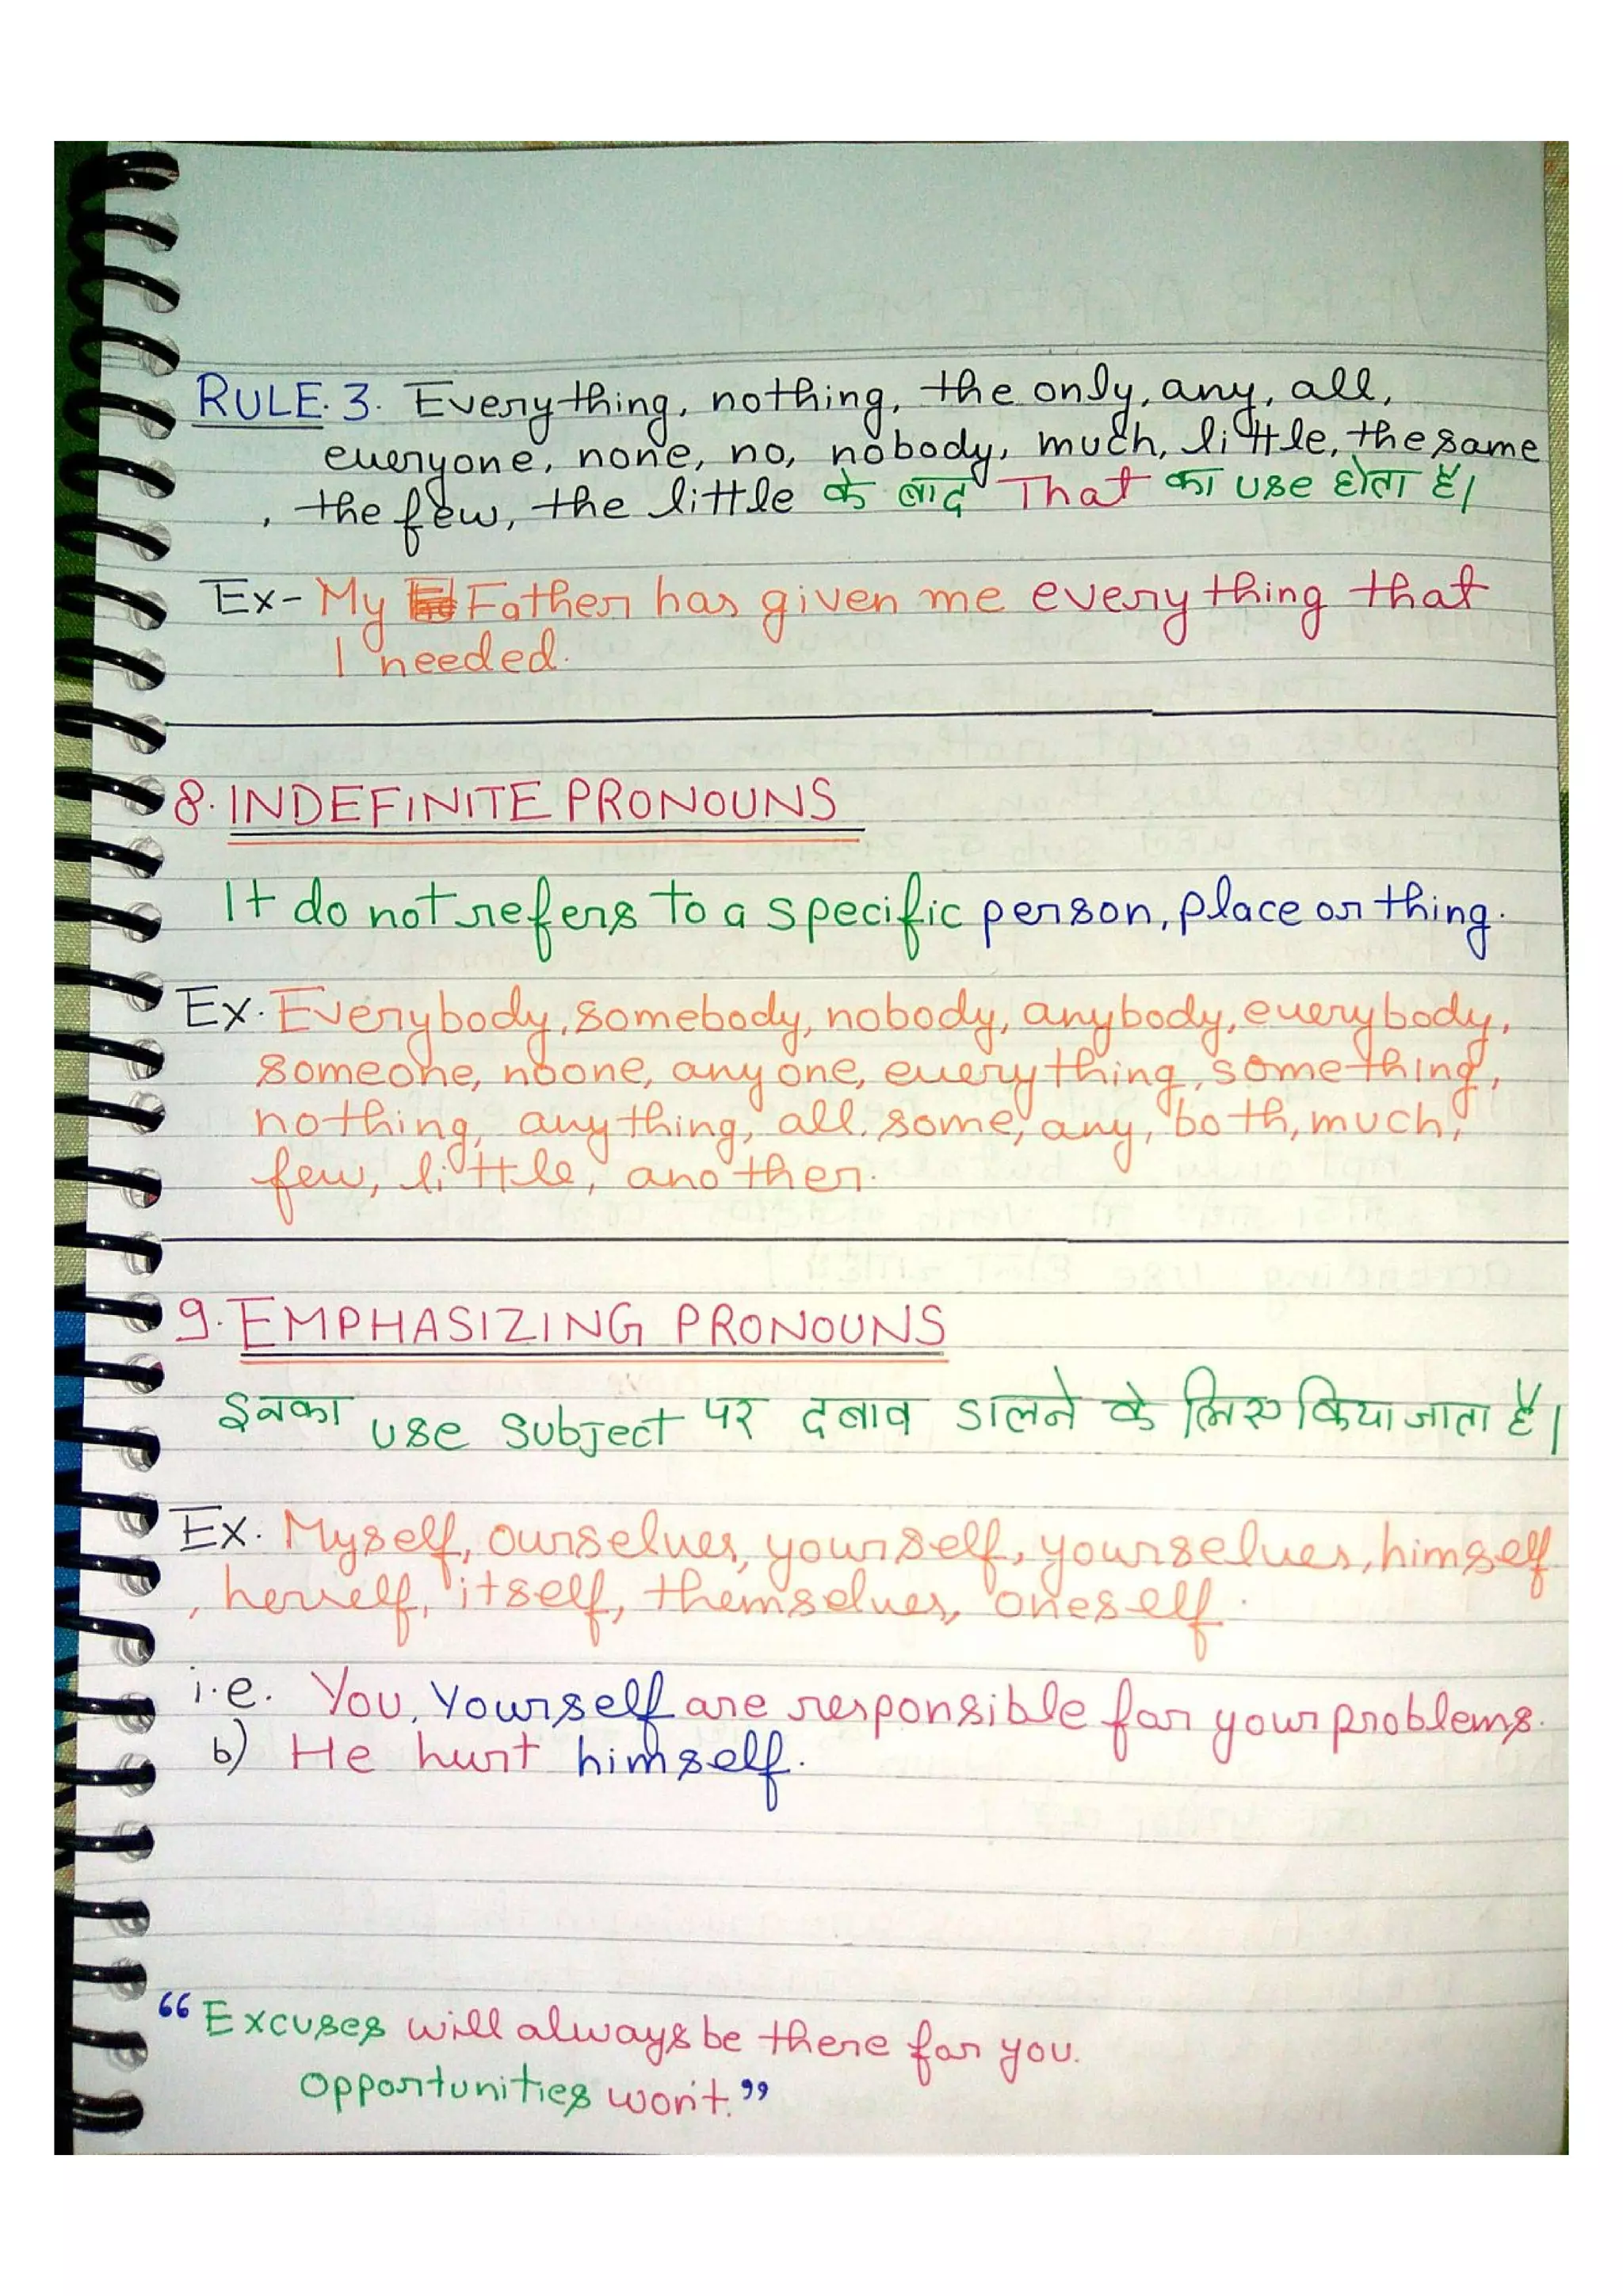 RULE.3. Everything, nothing, the only, any, all,
everyone, none, no, nobody, much, little, the same
, the few, the little के बाद That का use होता है।
Ex- My Father has given me everything that
I needed.
8. INDEFINITE PRONOUNS
It do not refers to a specific person, place or thing.
Ex. Everybody, somebody, nobody, anybody, everybody,
someone, noone, anyone, everything, something,
nothing, anything, all, some, any, both, much,
few, little, another.
9. EMPHASIZING PRONOUNS
इनका use subject पर दबाव डालने के लिए किया जाता है।
Ex. Myself, ourselves, yourself, yourselves, himself
, herself, itself, themselves, oneself.
i.e. You, Yourself are responsible for your problems.
b) He hurt himself.
“Excuses will always be there for you.
Opportunities won't.”